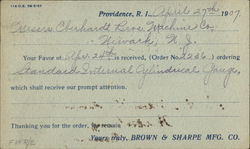 Providence, R. I., April 27th 1907
Messrs Eberhardt Bros. Machine Co.
Newark, N. J.
Your Favor of Apr. 26th is received, (Order No. 2236) ordering
Standard External Cylindrical Gauge,
which shall receive our prompt attention.
Thanking you for the order, we remain
Yours very truly, BROWN & SHARPE MFG. CO.